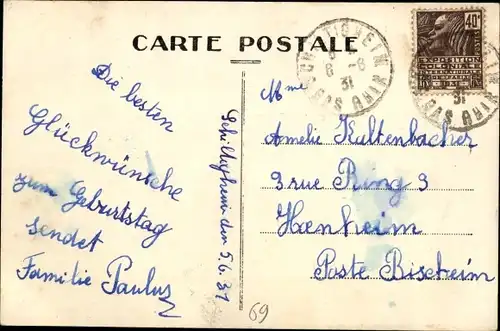 CARTE POSTALE
40c
EXPOSITION
COLONIALE
INTERNATIONALE
PARIS
8 -6
31
BAS RHIN
31
BAS RHIN
Die besten
Glückwünsche
zum Geburtstag
sendet
Familie Paulus
Schiltigheim den 5.6.31
Mme
Amelie Kaltenbacher
3 rue Ring 3
Hœnheim
Poste Bischeim
69